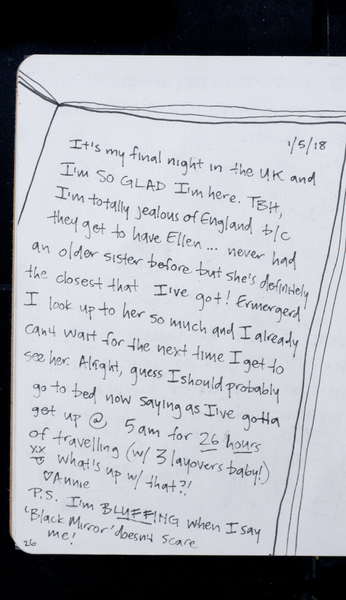 1/5/18
It's my final night in the UK and
I'm SO GLAD I'm here. TBH,
I'm totally jealous of England b/c
they get to have Ellen... never had
an older sister before but she's definitely
the closest that I've got! Ermergerd
I look up to her so much and I already
can't wait for the next time I get to
see her. Alright, guess I should probably
go to bed now saying as I've gotta
get up @ 5am for 26 hours
of travelling (w/ 3 layovers baby!)
xx What's up w/ that?!
♡Annie
P.S. I'm BLUFFING when I say
'Black Mirror' doesn't scare
me!
26